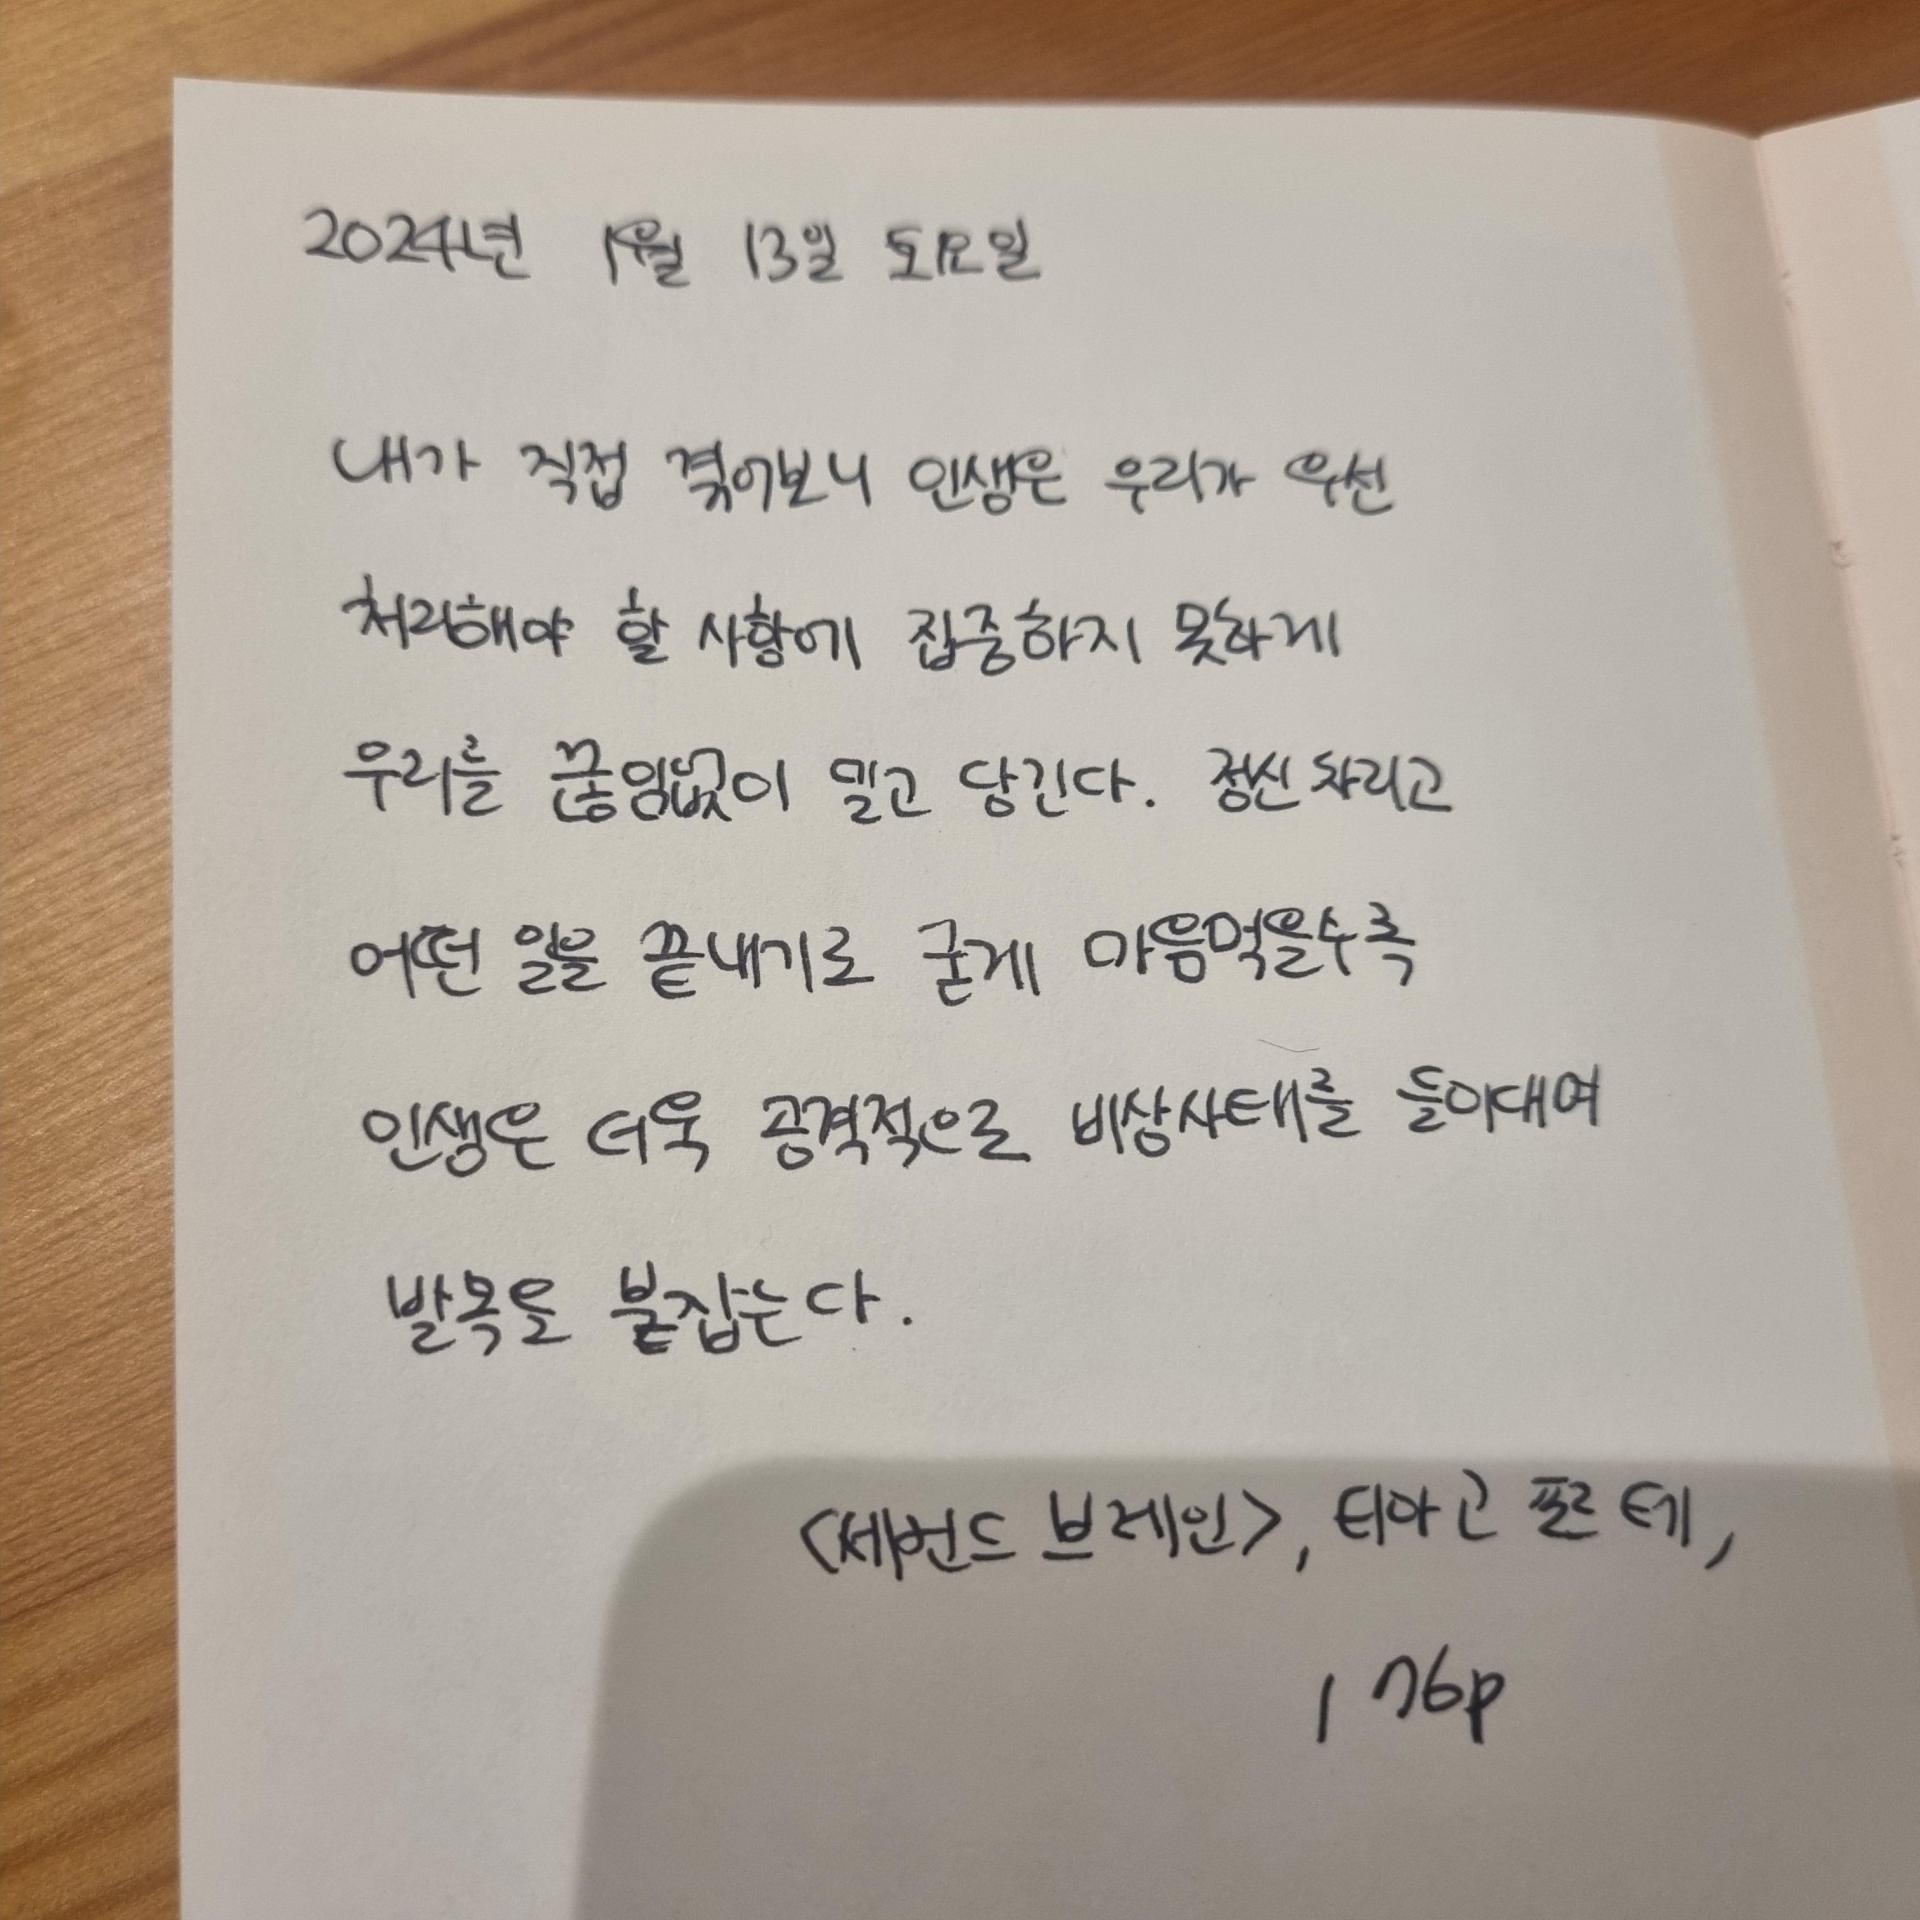 2024년 1월 13일 토요일
내가 직접 겪어보니 인생은 우리가 우선
처리해야 할 사항에 집중하지 못하게
우리를 끊임없이 밀고 당긴다. 정신 차리고
어떤 일을 끝내기로 굳게 마음먹을수록
인생은 더욱 공격적으로 비상사태를 들이대며
발목을 붙잡는다.
<세컨드 브레인>, 티아고 포르테,
176p